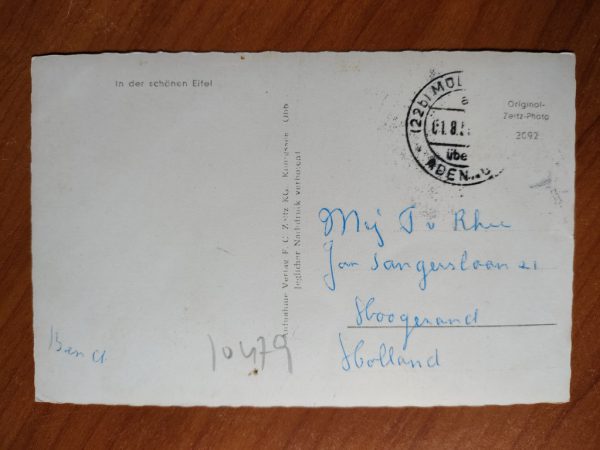 In der schönen Eifel
(22b) MÜL
01.8.5
übe
ADEN
Original-
Zeitz-Photo
2092
Aufnahme Verlag F. C. Zeitz KG., Königssee / Obb
Jeglicher Nachdruck verboten!
Mej T v Rhee
Jan Sangerslaan 21
Hoogezand
Holland
10479